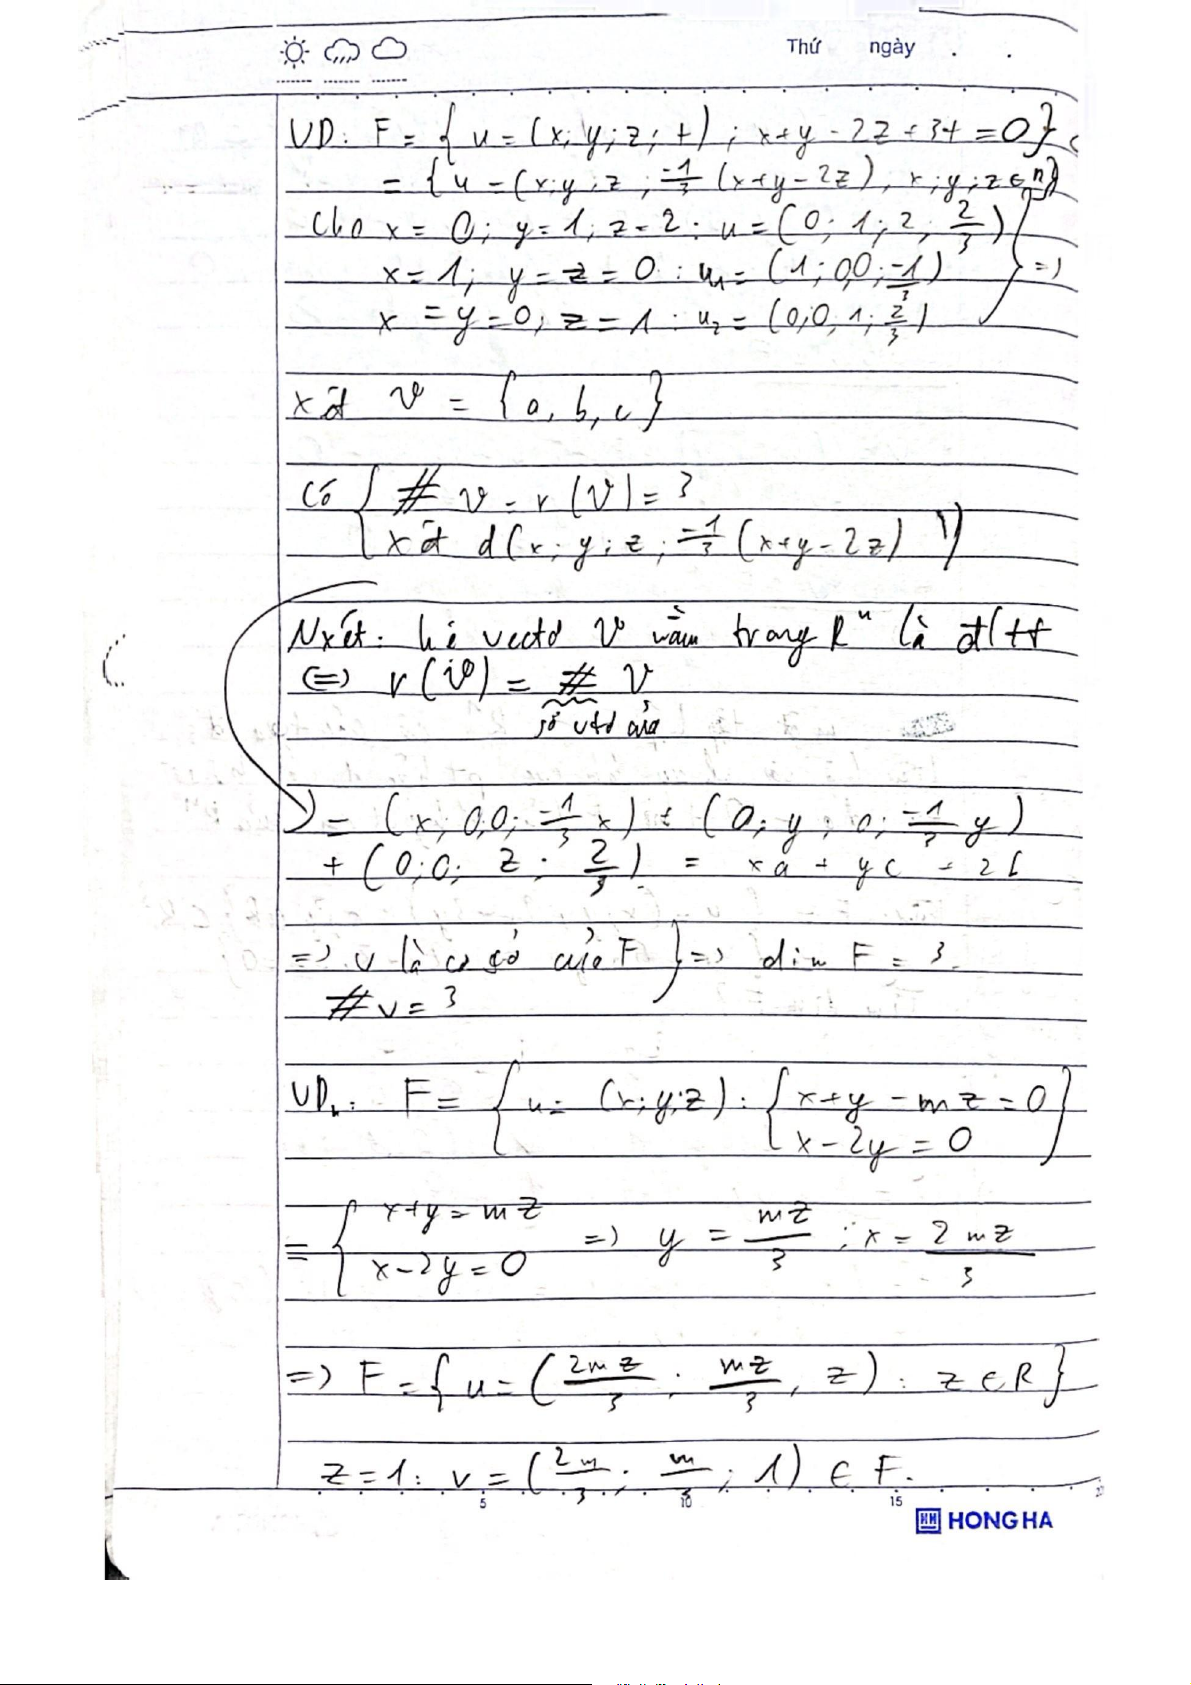 Thứ ngày . .
VD: F = { u = (x; y; z; t) ; x+y - 2z + 3t = 0}
= {u = (x; y; z; -1/3 (x+y-2z), x; y; z ∈ R}
Cho x = 0; y = 1; z = 2 : u = (0; 1; 2; 2/3)
x = 1; y = z = 0 : u₁ = (1; 0,0; -1/3) } =>
x = y = 0; z = 1 : u₂ = (0; 0, 1; 2/3)
Xét V = {a, b, c}
Có { # V = r (V) = 3
Xét d(x; y; z; -1/3 (x+y-2z)
Nxét: hệ vectơ V nằm trong Rⁿ là đltt
<=> r (V) = # V
số vtơ của
= (x; 0,0; -1/3 x) + (0; y; 0; -1/3 y)
+ (0; 0; z; 2/3) = xa + yc + zb
=> V là cơ sở của F } => dim F = 3.
# V = 3
VD: F = { u = (x; y; z) : { x+y - mz = 0
x - 2y = 0 }
= { x+y = mz => y = mz/3 ; x = 2mz/3
x - 2y = 0
=> F = { u = (2mz/3 ; mz/3 , z) : z ∈ R }
z = 1: v = (2m/3 ; m/3 ; 1) ∈ F.
5 10 15
HONG HA